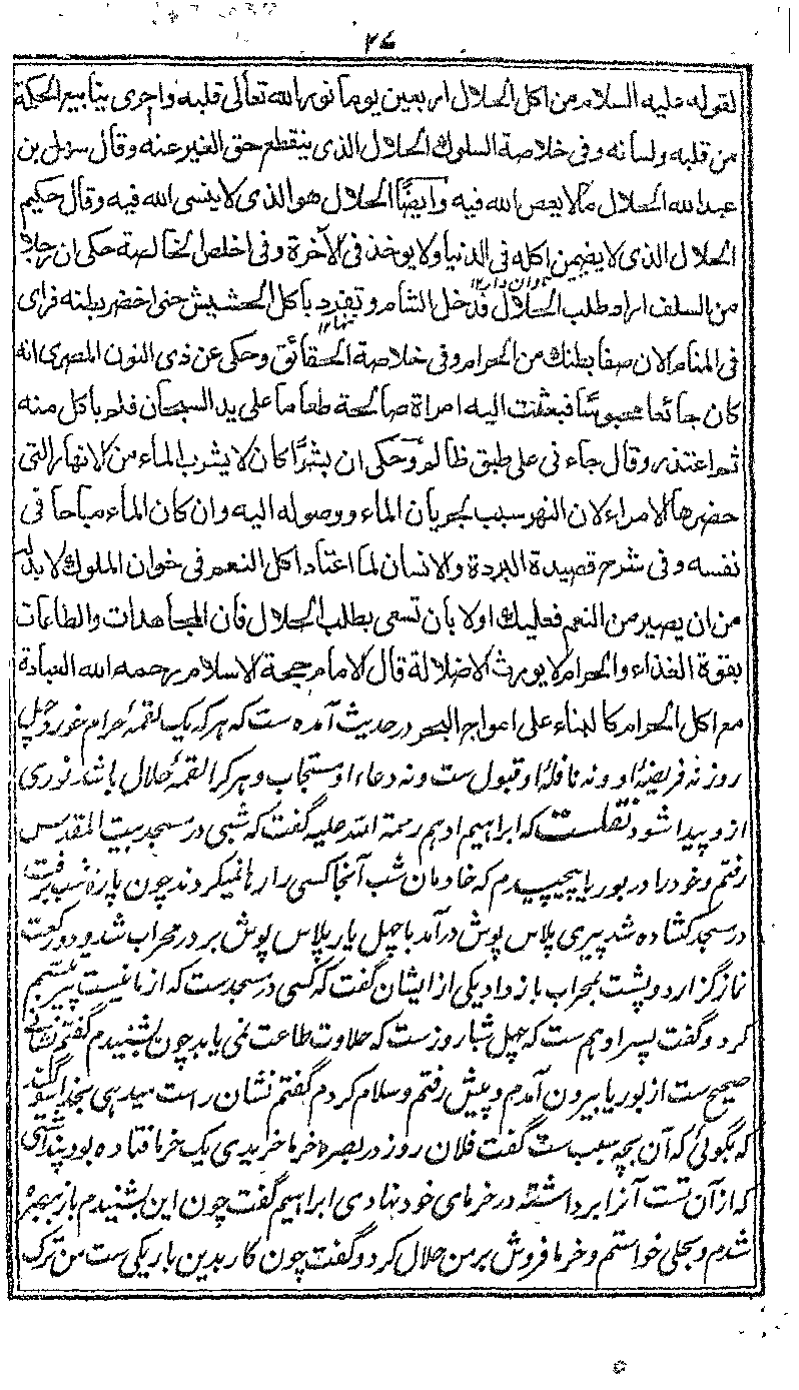 ٢٧
لقوله عليه السلام من اكل الحلال اربعين يوما نور الله تعالى قلبه واجرى ينابيع الحكمة
من قلبه ولسانه وفى خلاصة السلوك الحلال الذى ينقطع حق الغير عنه وقال سهل بن
عبد الله الحلال ما لا يعصى الله فيه وايضًا الحلال هو الذى لا ينسى الله فيه وقال حكيم
الحلال الذى لا يضمن اكله فى الدنيا ولا يوخذ فى الآخرة وفى اخلص الخالصة حكى ان رجلا
من السلف اراد طلب الحلال فدخل الشام وتفرد باكل الحشيش حتى اخضر بطنه فراى
تنها١٢
فى المنام الان صفا بطنك من الحرام وفى خلاصة الحقائق وحكى عن ذى النون المصرى انه
كان جائعا محبوسًا فبعثت اليه امراة صالحة طعاما على يد السجان فلم ياكل منه
ثم اعتذر وقال جاءنى على طبق ظالم وحكى ان بشرًا كان لا يشرب الماء من الانهار التى
حضرها الامراء لان النهر سبب لجريان الماء ووصوله اليه وان كان الماء مباحا فى
نفسه وفى شرح قصيدة البردة والانسان لما اعتاد اكل النعم فى خوان الملوك لا بد له
من ان يصير من النعم فعليك اولا بان تسعى بطلب الحلال فان المجاهدات والطاعات
بقوة الغذاء والحرام لا يورث الا ضلالة قال الامام حجة الاسلام رحمه الله العبادة
مع اكل الحرام كالبناء على امواج البحر در حدیث آمده ست که هر که یک لقمهٔ حرام خورد چهل
روز نه فریضهٔ او و نه نافلهٔ او قبول ست و نه دعاء او مستجاب و هر کرا لقمهٔ حلال باشد نوری
ازو پیدا شود نقلست که ابراهیم ادهم رحمة الله علیه گفت که شبی در مسجد بیت المقدس
رفتم و خود را در بوریا پیچیدم که خادمان شب آنجا کسی را رها نمیکردند چون پارهٔ شب برفت
در مسجد کشاده شد پیری پلاس پوش درآمد با چهل یار پلاس پوش بر در محراب شد و دو رکعت
نماز گزارد و پشت بمحراب باز داد یکی از ایشان گفت که کسی در مسجد ست که از ما نیست پیر تبسم
کرد و گفت پسر ادهم ست که چهل شبا روز ست که حلاوت طاعت نمی یابد چون بشنیدم گفتم نشانی
صحیح ست از بوریا بیرون آمدم و پیش رفتم و سلام کردم گفتم نشان راست میدهی بخدا سوگند
که بگوئی که آن بچه سبب ست گفت فلان روز در بصره خرما خریدی یک خرما افتاده بود پنداشتی
که از آن تست آنرا برداشته در خرمای خود نهادی ابراهیم گفت چون این بشنیدم باز ببصره
شدم و بحلی خواستم و خرما فروش بر من حلال کرد و گفت چون کار بدین باریکی ست من ترک